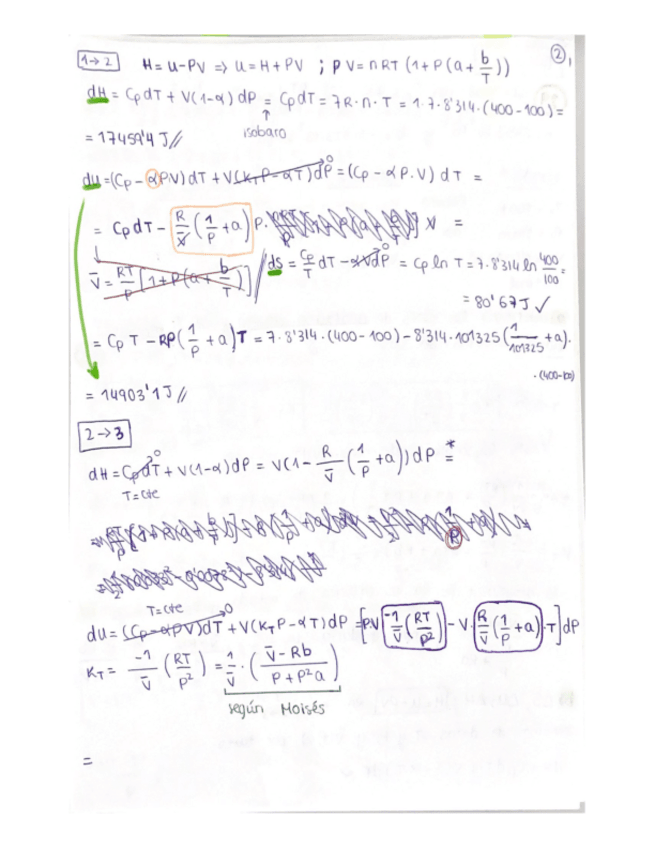 1→2 H = U-PV ⇒ U = H + PV ; PV = nRT (1+P(a+ b/T)) ②
dH = CpdT + V(1-α)dP = CpdT = 7R·n·T = 1·7·8'314·(400-100) =
↑ isobaro
= 17459'4 J//
dU = (Cp - αPV)dT + V(KTP - αT)dP →0 = (Cp - αP.V) dT =
= CpdT - R/V (1/P + a) P· V =
V̄ = RT/P [1+P(a+ b/T)] / dS = Cp/T dT - αVdP →0 = Cp ln T = 7·8'314 ln 400/100 =
= 80'67 J ✓
= Cp T - RP(1/P + a)T = 7·8'314·(400-100) - 8'314·101325 (1/101325 + a)·
·(400-100)
= 14903'1 J//
2→3
dH = CpdT →0 + V(1-α)dP = V(1 - R/V̄ (1/P + a)) dP =*
T=cte
R
T=cte
dU = (Cp - αPV)dT →0 + V(KTP - αT)dP = [PV -1/V̄ (RT/P²) - V· R/V̄ (1/P + a)·T]dP
KT = -1/V̄ (RT/P²) = 1/V̄ · (V̄ - Rb / P + P²a)
según Moisés
=